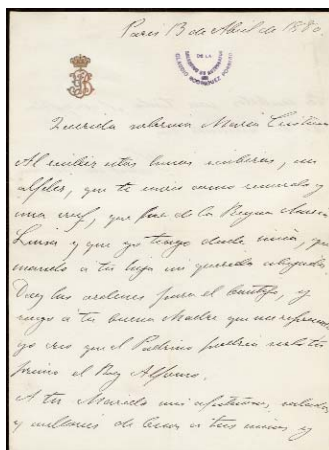 Paris 13 de Abril de 1880.
DE LA
Querida sobrina María Cristina
Al recibir estas lineas recibiras, un
alfiler, que te envio como recuerdo y
una cruz, que fué de la Reyna María
Luisa y que yo tengo desde niña, que
mando a tu hija mi querida ahijada.
Doy las ordenes para el bautizo, y
ruego a tu buena Madre que me represente
yo creo que el Padrino podria ser tu
primo el Rey Alfonso.
A tu Marido mis afectuosos saludos
y millones de besos a tus niños y